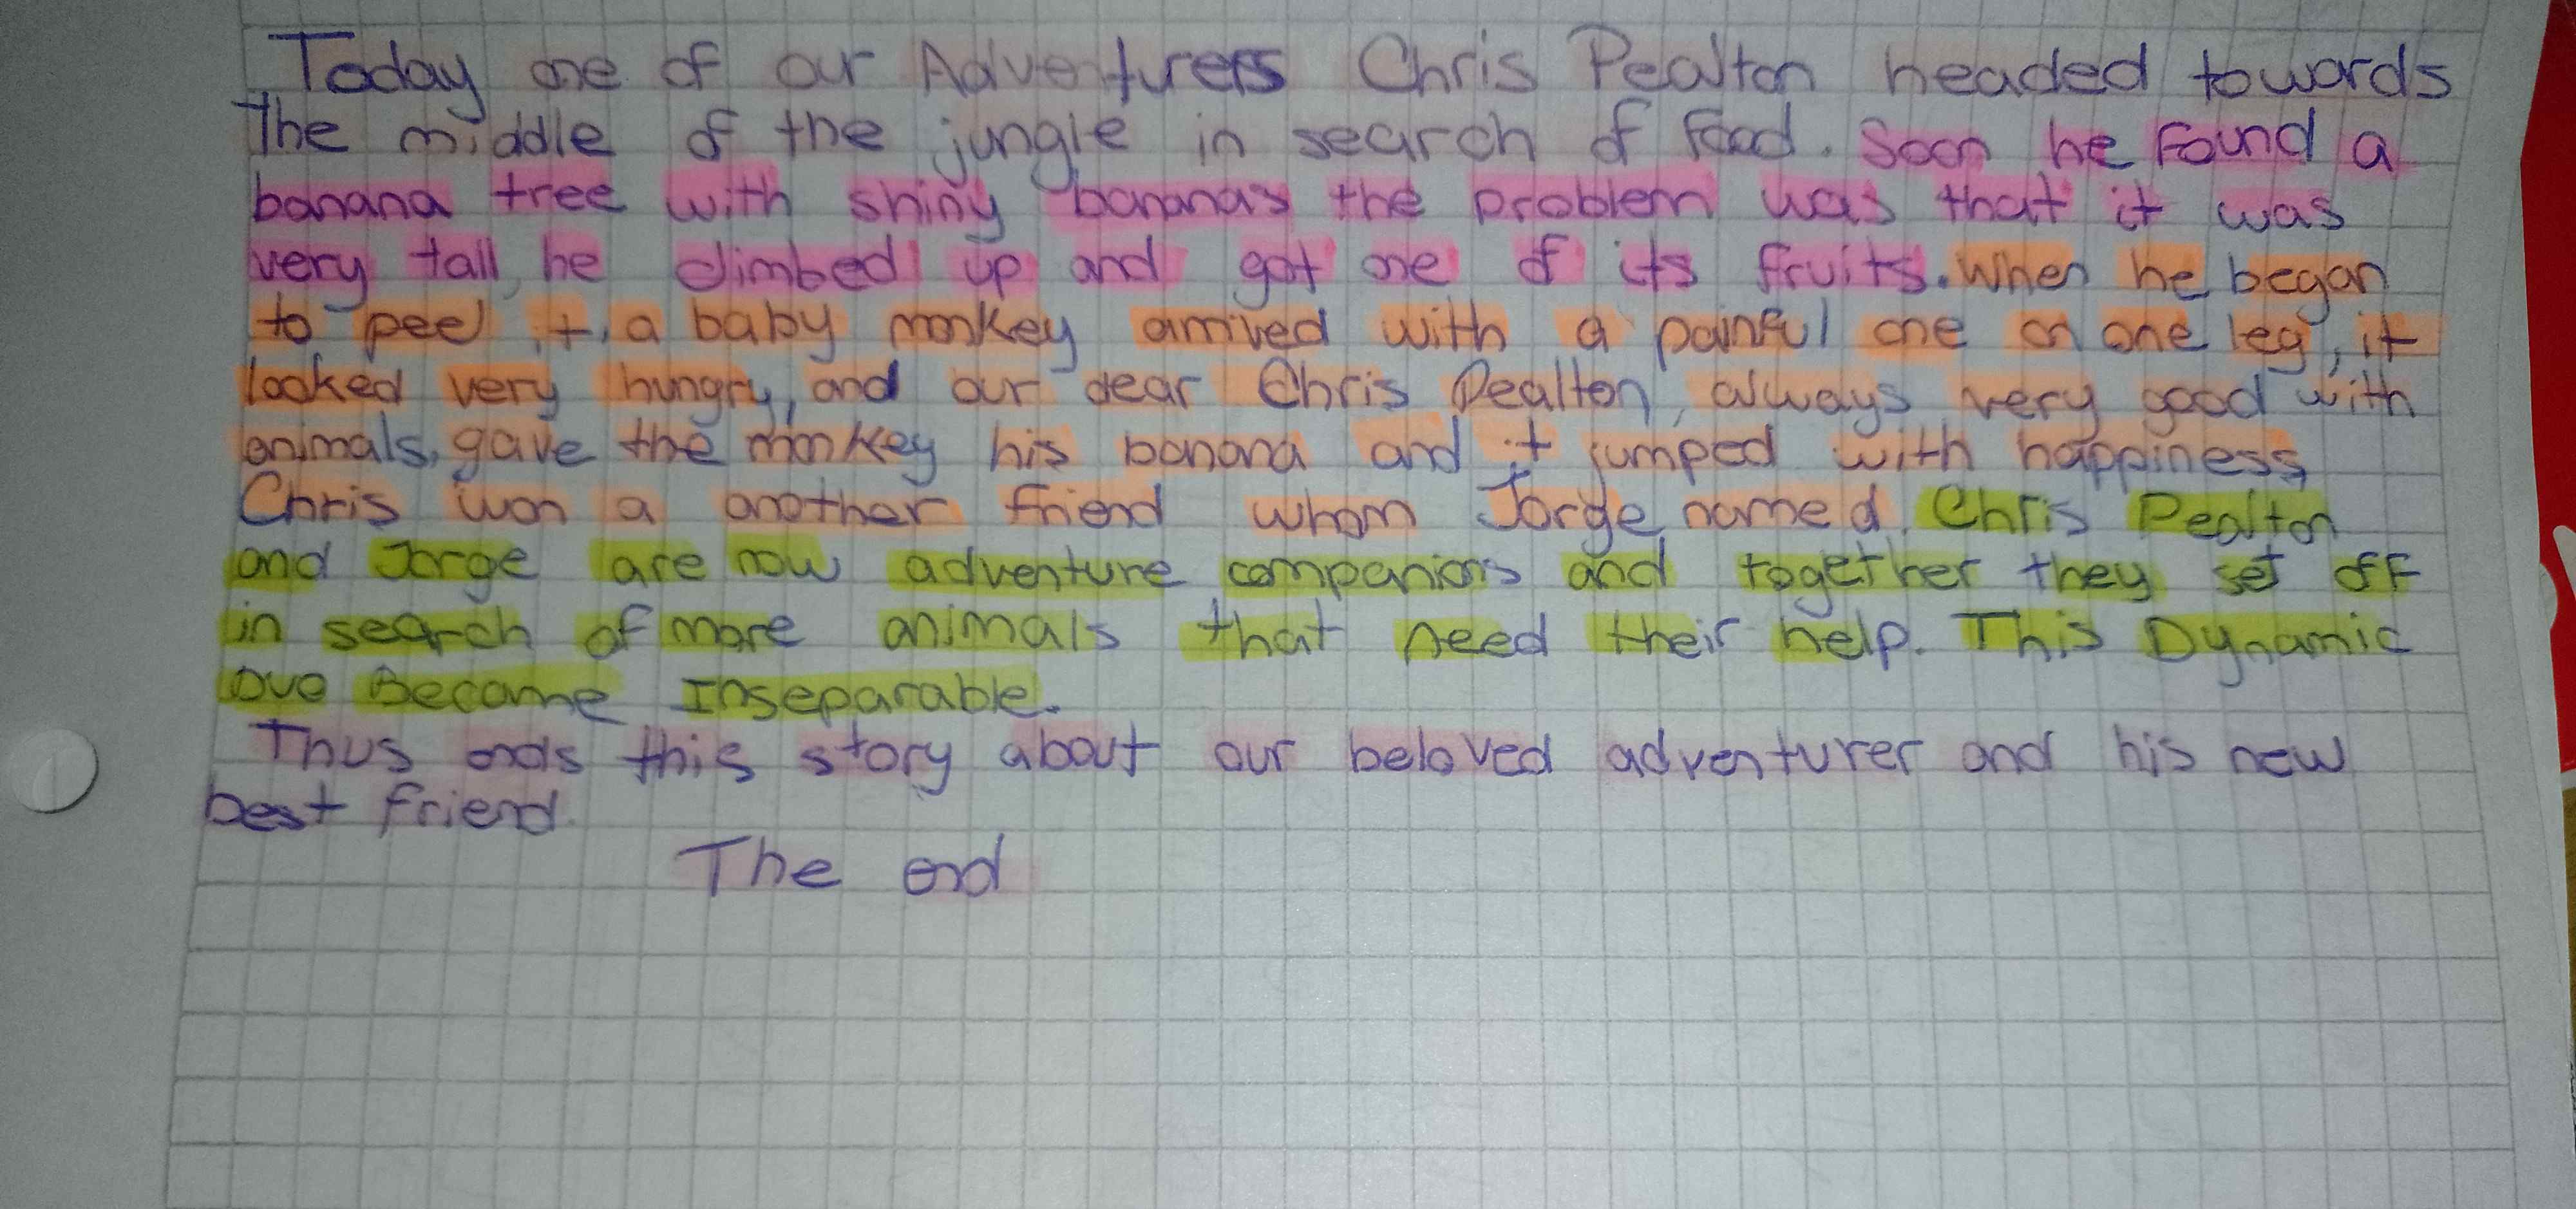 Today one of our Adventurers Chris Pealton headed towards
The middle of the jungle in search of food. Soon he found a
banana tree with shiny bananas the problem was that it was
very tall, he climbed up and got one of its fruits. When he began
to peel it, a baby monkey arrived with a painful one on one leg, it
looked very hungry, and our dear Chris Pealton, always very good with
animals, gave the monkey his banana and it jumped with happiness
Chris won a another friend whom Jorge named. Chris Pealton
and Jorge are now adventure companions and together they set off
in search of more animals that need their help. This Dynamic
Duo Became Inseparable.
Thus ends this story about our beloved adventurer and his new
best friend.
The end